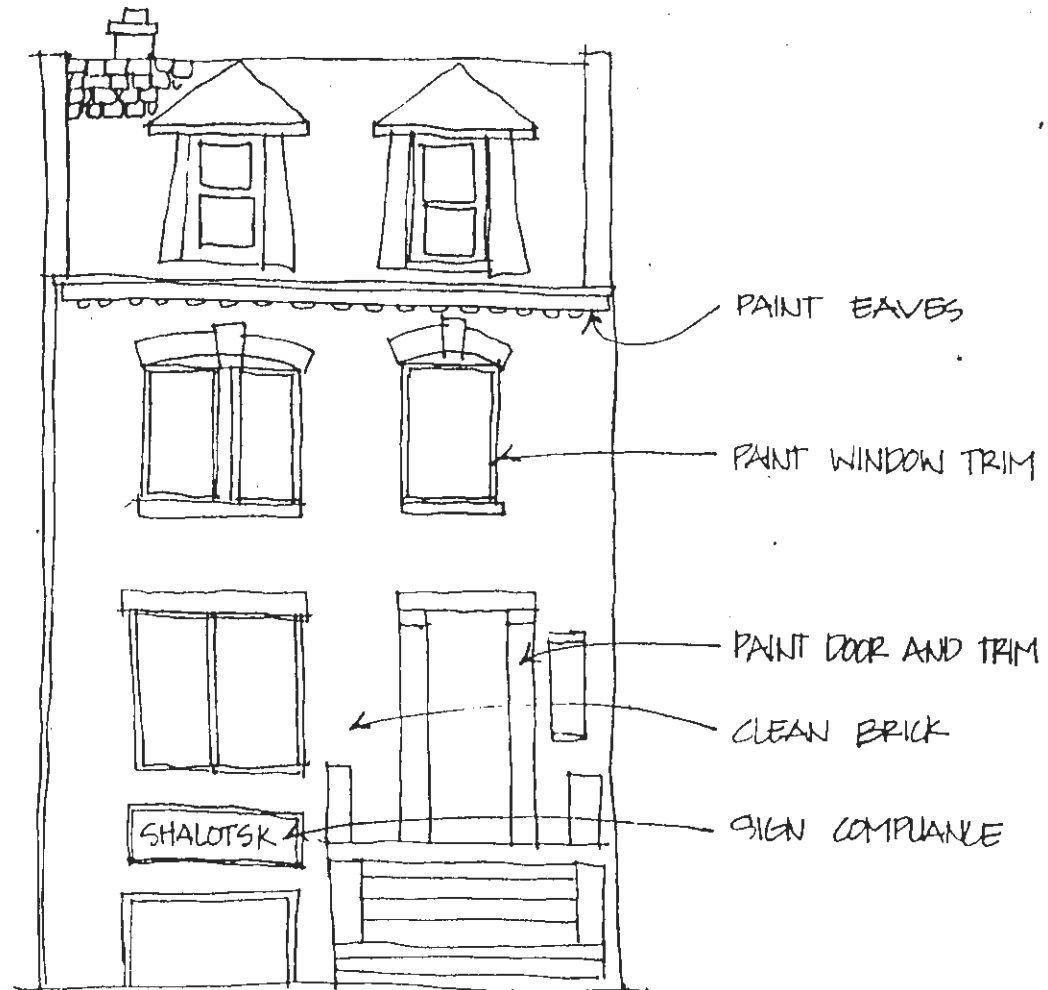 PAINT EAVES
PAINT WINDOW TRIM
PAINT DOOR AND TRIM
CLEAN BRICK
SHALOTSK
SIGN COMPLIANCE